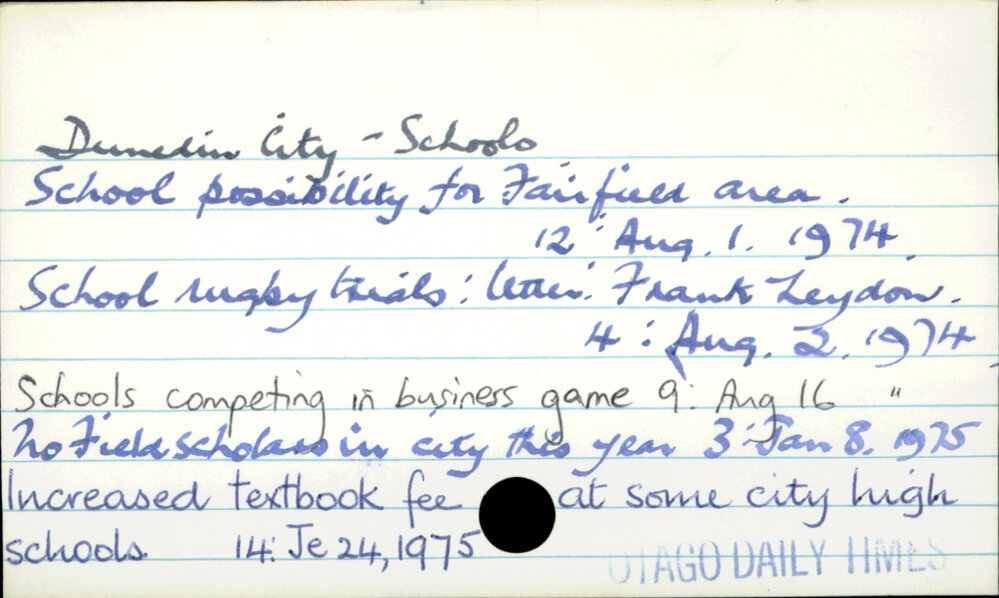 Dunedin City - Schools
School possibility for Fairfield area.
12: Aug. 1. 1974.
School rugby trials: letter: Frank Leydon.
4: Aug. 2. 1974
Schools competing in business game 9: Aug 16 "
No Field scholars in city this year 3: Jan 8. 1975
Increased textbook fee at some city high
schools. 14: Je 24, 1975
OTAGO DAILY TIMES